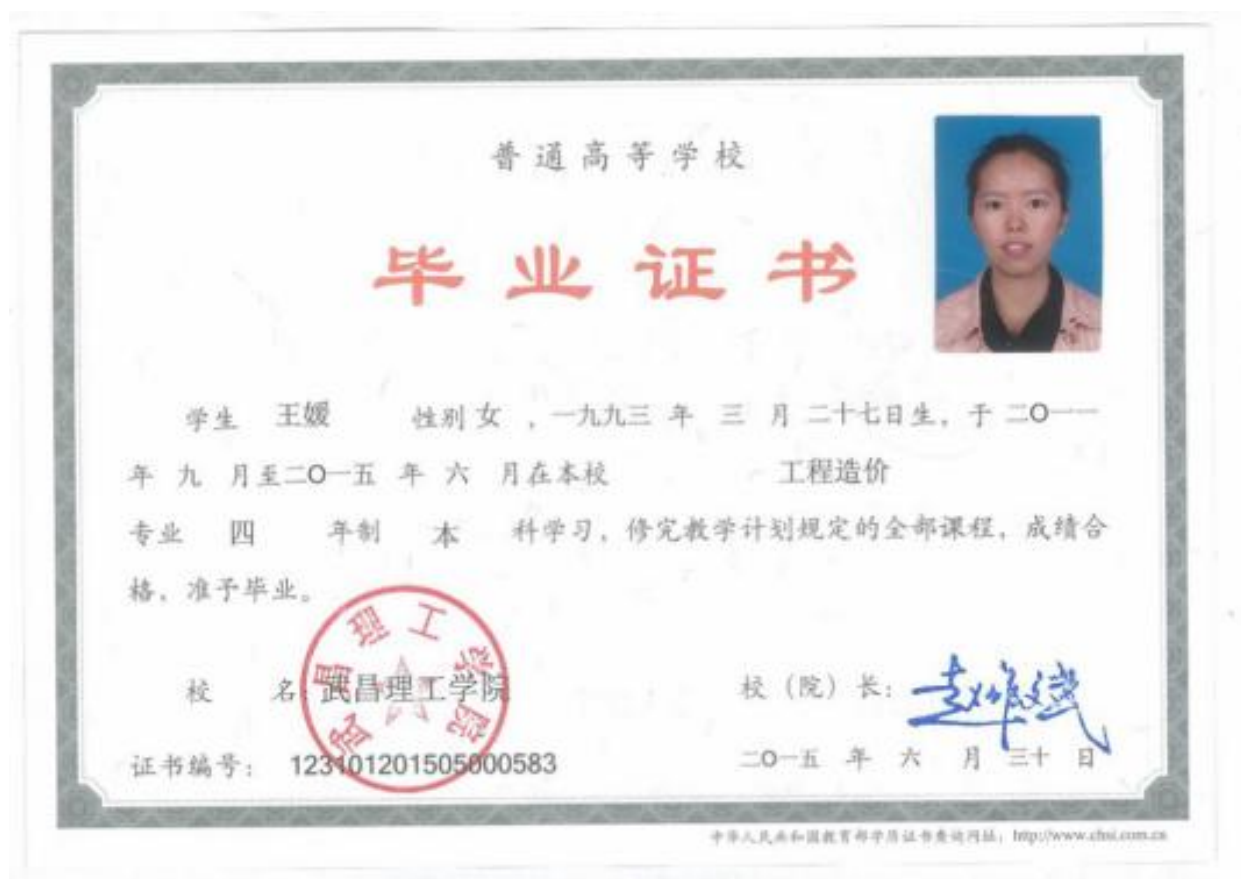 普通高等学校
毕业证书
学生 王媛 性别 女 ，一九九三 年 三 月 二十七日生，于 二O一一
年 九 月至二O一五 年 六 月在本校 工程造价
专业 四 年制 本 科学习，修完教学计划规定的全部课程，成绩合
格，准予毕业。
武昌理工学院
校 名：武昌理工学院 校（院）长：赵作斌
证书编号： 123101201505000583 二O一五 年 六 月 三十 日
中华人民共和国教育部学历证书查询网址：http://www.chsi.com.cn